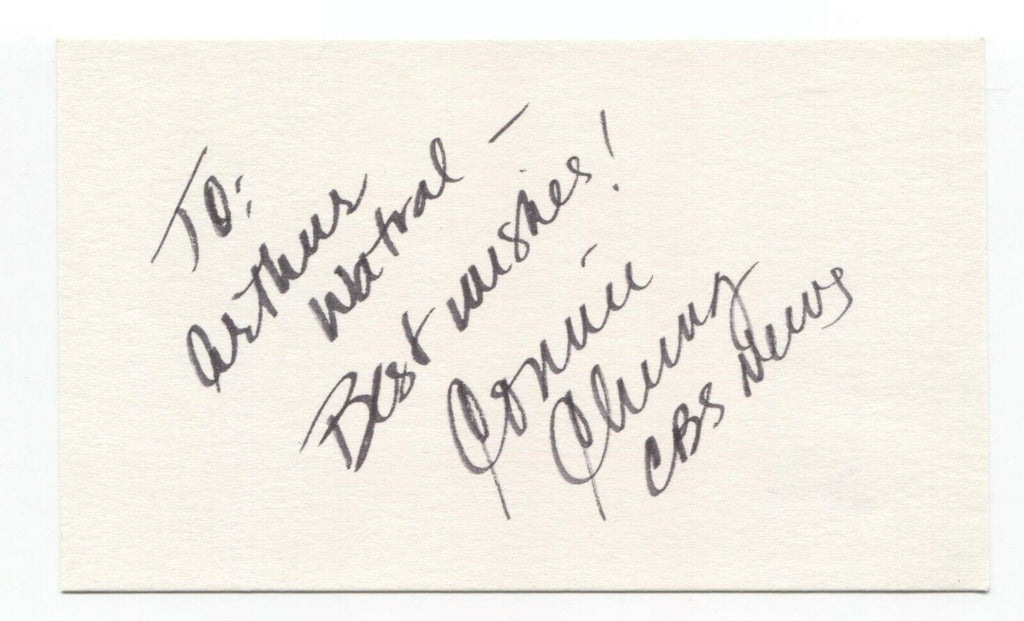 To:
Arthur
Watral —
Best wishes!
Connie
Chung
CBS News